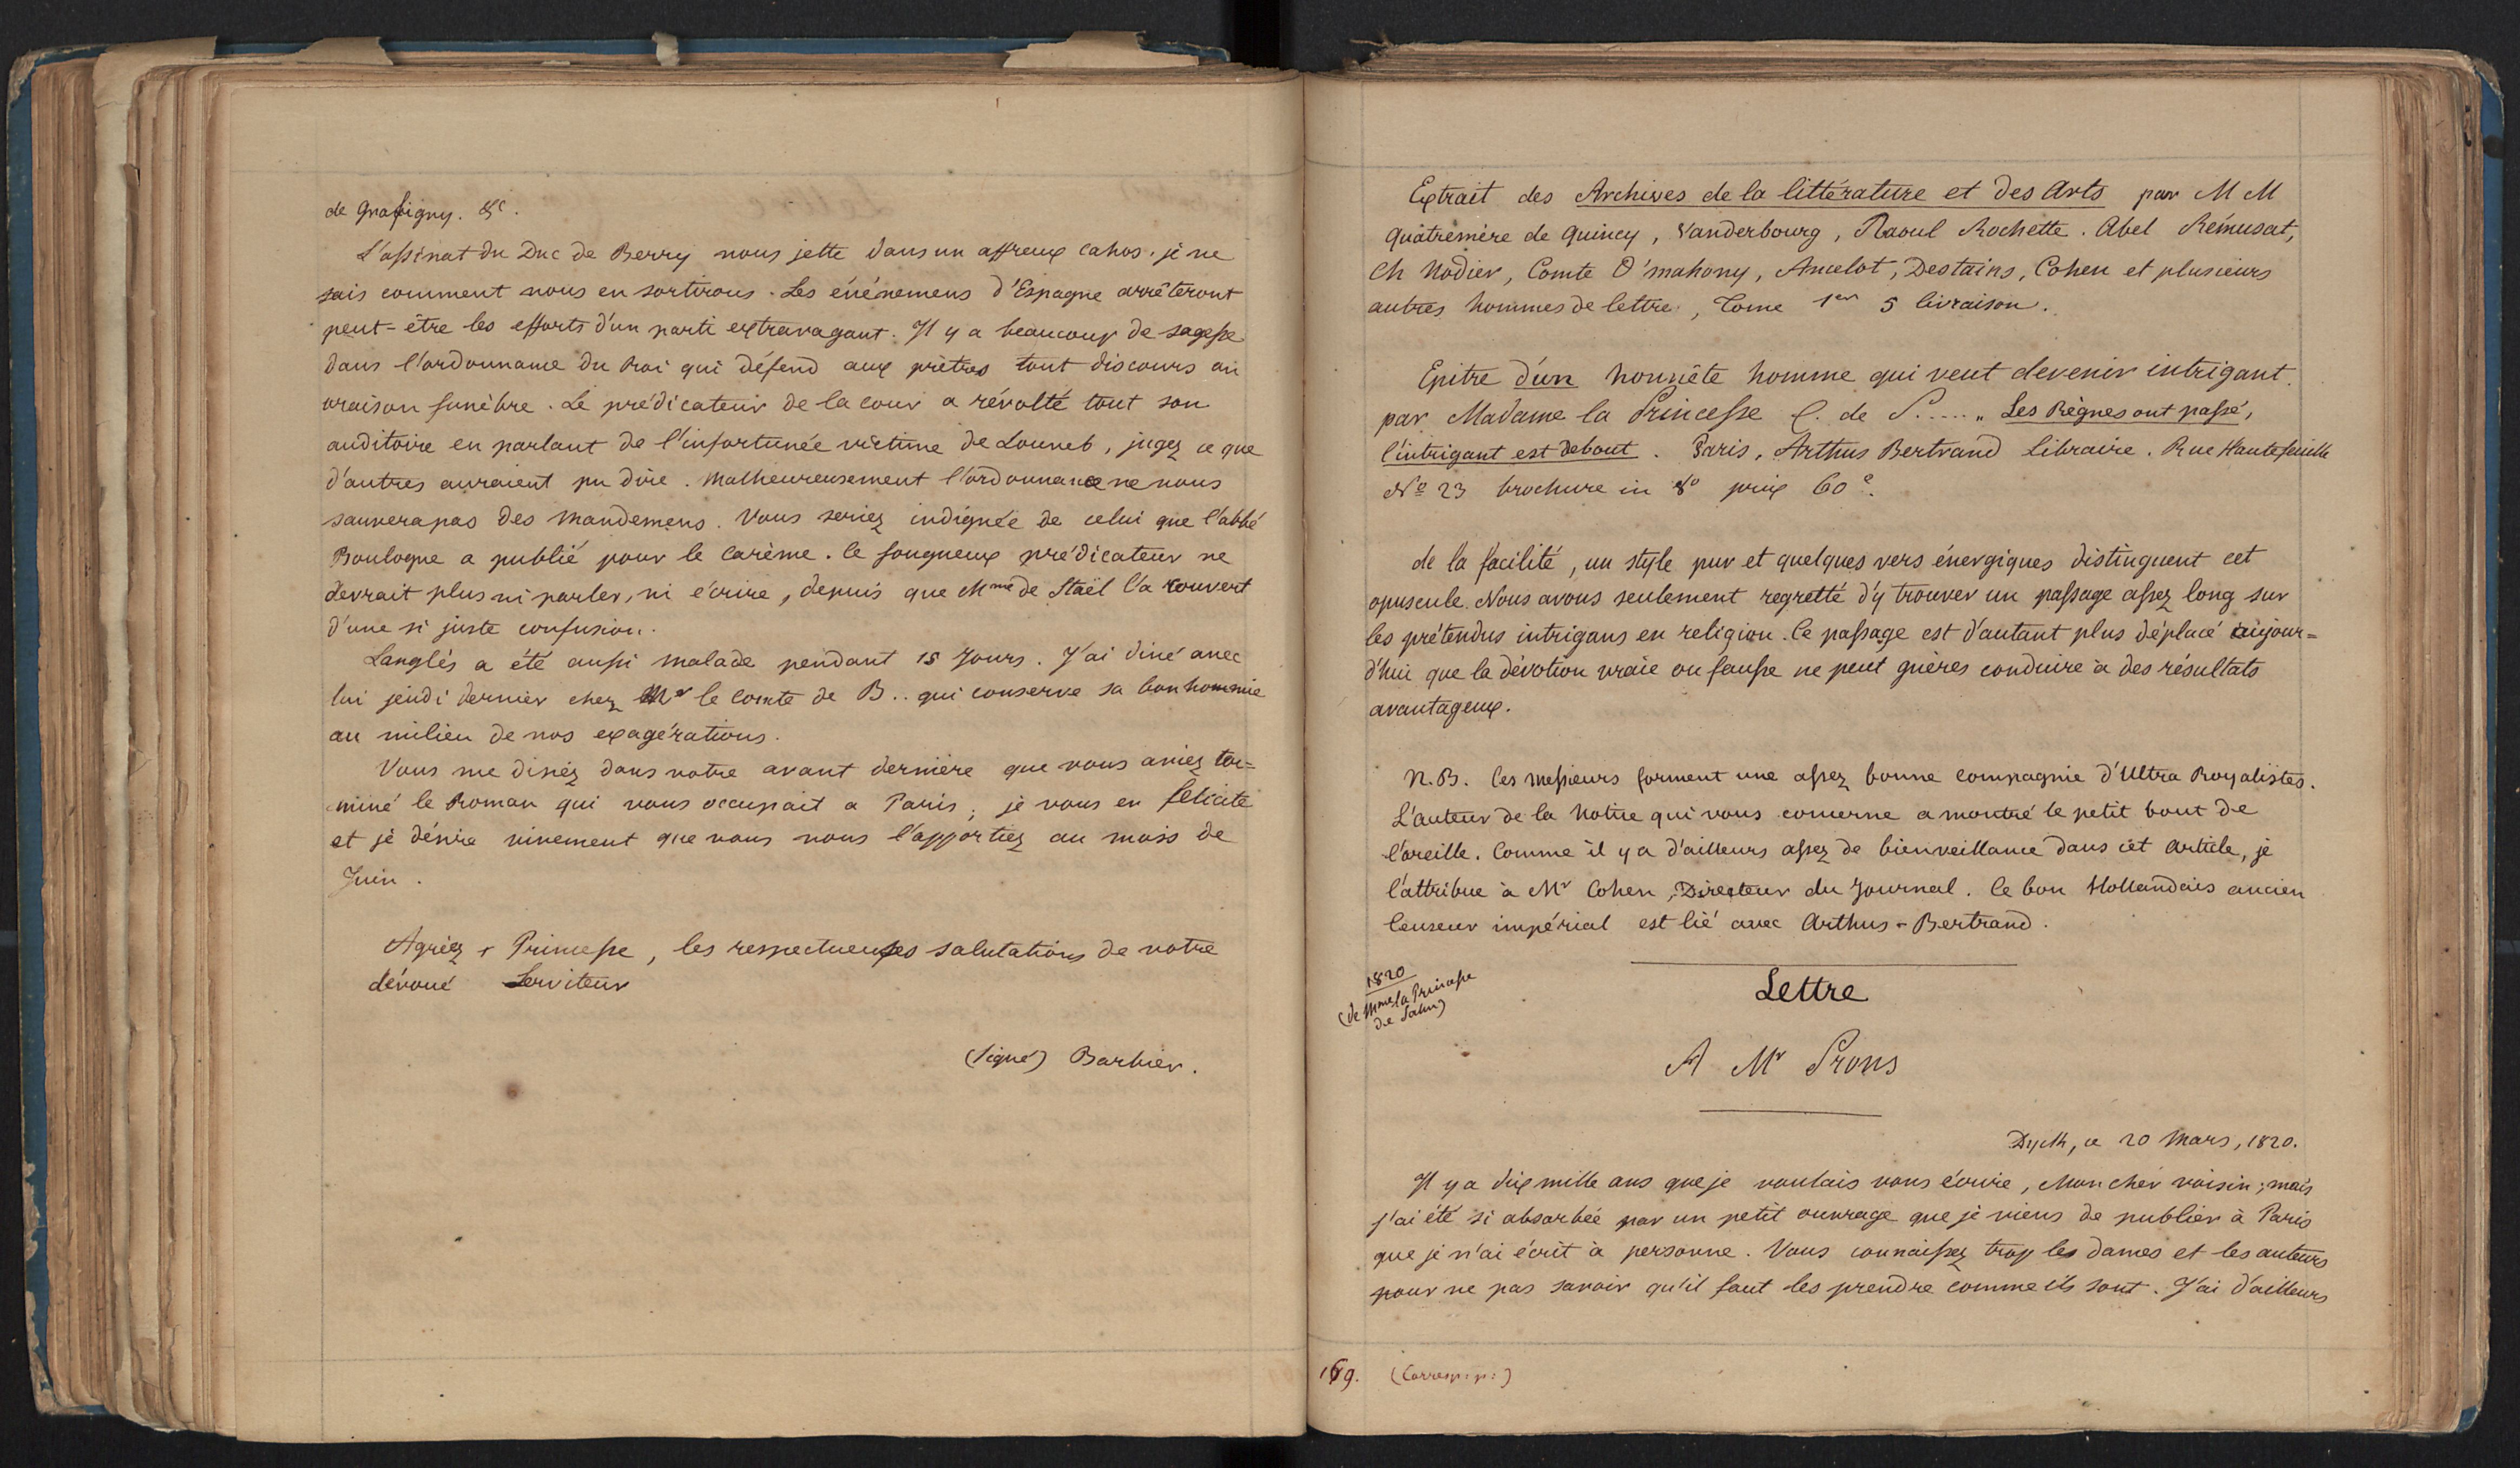 de Grafigny. &c.
L'assinat du Duc de Berry nous jette dans un affreux cahos. je ne
sais comment nous en sortirons. Les événemens d'Espagne arrêteront
peut-être les efforts d'un parti extravagant. Il y a beaucoup de sagesse
dans l'ordonnance du Roi qui défend aux prêtres tout discours ou
oraison funèbre. Le prédicateur de la cour a révolté tout son
auditoire en parlant de l'infortunée victime de Louvet, jugez ce que
d'autres auraient pu dire. Malheureusement l'ordonnance ne nous
sauvera pas des mandemens. Vous seriez indignée de celui que l'abbé
Boulogne a publié pour le Carème. Ce fougueux prédicateur ne
devrait plus ni parler, ni écrire, depuis que Mme de Staël l'a couvert
d'une si juste confusion.
Langlès a été aussi malade pendant 15 jours. J'ai diné avec
lui jeudi dernier chez Mr le Comte de B.. qui conserve sa bonhommie
au milieu de nos exagérations.
Vous me disiez dans votre avant dernière que vous aviez ter=
miné le Roman qui vous occupait a Paris; je vous en félicite
et je désire vivement que vous nous l'apportiez au mois de
Juin.
Agréez, Princesse, les respectueuses salutations de votre
dévoué Serviteur
(Signé) Barbier.
Extrait des Archives de la littérature et des Arts par M M
Quatremère de Quincy, Vanderbourg, Raoul Rochette. Abel Rémusat,
Ch Nodier, Comte O'mahony, Ancelot, Destains, Cohen et plusieurs
autres hommes de lettre, Tome 1er 5 livraison.
Epitre d'un honnête homme qui veut devenir intrigant.
par Madame la Princesse C. de S..... „ Les Règnes ont passé,
l'intrigant est debout. Paris, Arthus Bertrand Libraire. Rue Hautefeuille
No 23 brochure in 8o prix 60c.
de la facilité, un style pur et quelques vers énergiques distinguent cet
opuscule. Nous avons seulement regretté d'y trouver un passage assez long sur
les prétendus intrigans en religion. Ce passage est d'autant plus déplacé aujour=
d'hui que la dévotion vraie ou fausse ne peut guères conduire à des résultats
avantageux.
N.B. Ces messieurs forment une assez bonne compagnie d'Ultra Royalistes.
L'auteur de la Notice qui vous concerne a montré le petit bout de
l'oreille. Comme il y a d'ailleurs assez de bienveillance dans cet Article, je
l'attribue à Mr Cohen, Directeur du Journal. Ce bon Hollandais ancien
Censeur impérial est lié avec Arthus-Bertrand.
1820
(de Mme la Princesse
de Salm)
Lettre
A Mr Prons
Dyck, ce 20 Mars, 1820.
Il y a dix mille ans que je voulais vous écrire, Mon cher voisin; mais
j'ai été si absorbée par un petit ouvrage que je viens de publier à Paris
que je n'ai écrit à personne. Vous connaissez trop les dames et les auteurs
pour ne pas savoir qu'il faut les prendre comme ils sont. J'ai d'ailleurs
169. (Corresp: p:)